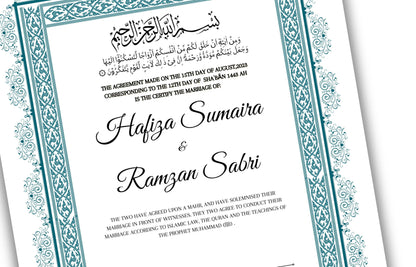 بِسْمِ اللَّهِ الرَّحْمَٰنِ الرَّحِيمِ
وَمِنْ آيَاتِهِ أَنْ خَلَقَ لَكُم مِّنْ أَنفُسِكُمْ أَزْوَاجًا لِّتَسْكُنُوا إِلَيْهَا
وَجَعَلَ بَيْنَكُم مَّوَدَّةً وَرَحْمَةً إِنَّ فِي ذَٰلِكَ لَآيَاتٍ لِّقَوْمٍ يَتَفَكَّرُونَ
THE AGREEMENT MADE ON THE 15TH DAY OF AUGUST,2023
CORRESPONDING TO THE 12TH DAY OF SHA'BĀN 1443 AH
IS THE CERTIFY THE MARRIAGE OF:
Hafiza Sumaira
&
Ramzan Sabri
THE TWO HAVE AGREED UPON A MAHR, AND HAVE SOLEMNISED THEIR
MARRIAGE IN FRONT OF WITNESSES. THEY TWO AGREE TO CONDUCT THEIR
MARRIAGE ACCORDING TO ISLAMIC LAW, THE QURAN AND THE TEACHINGS OF
THE PROPHET MUHAMMAD (ﷺ) .